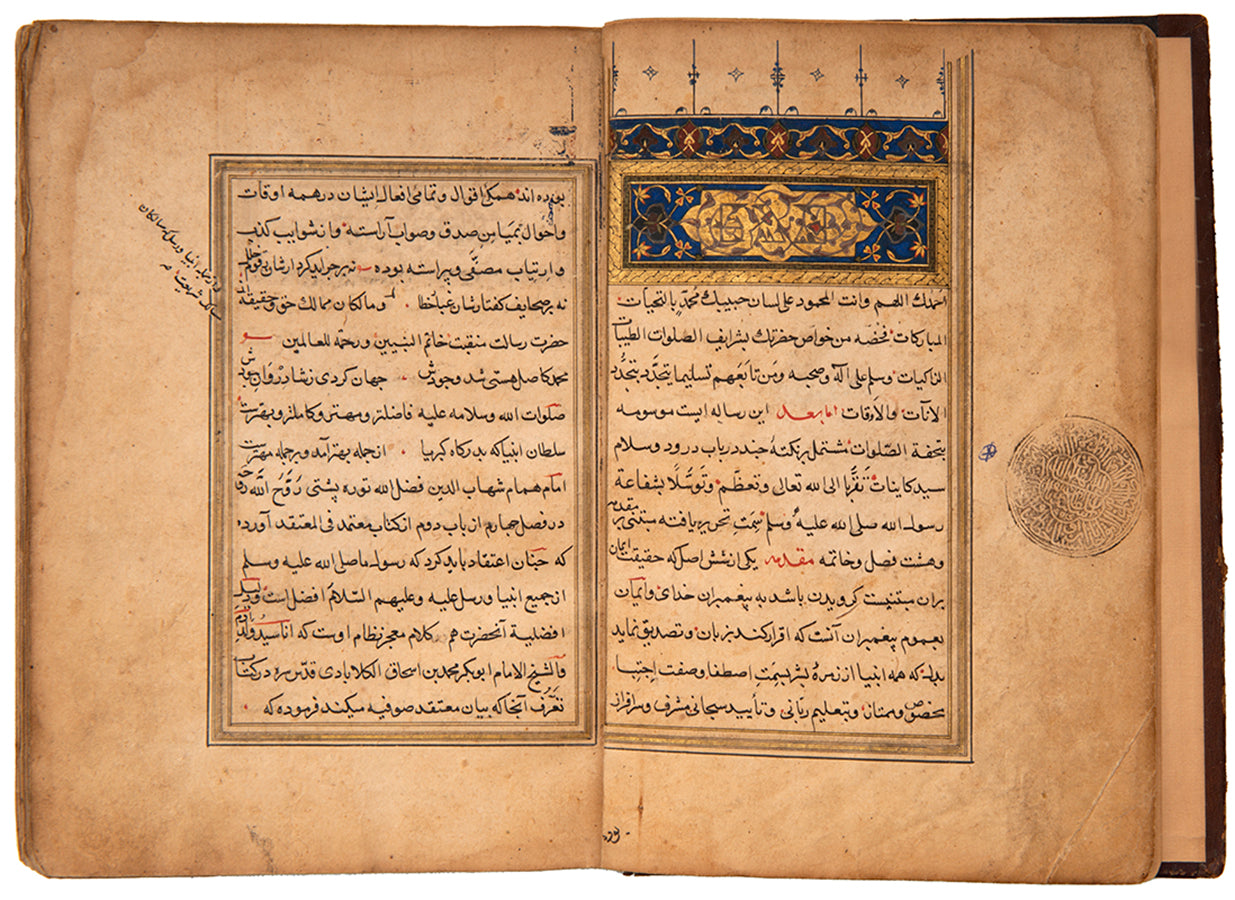 احمدك اللهم وانت المحمود على لسان حبيبك محمد بالتحيات
المباركات فخصه من خواص حضرتك بشرايف الصلوات الطيبات
الزاكيات وسلم على آله وصحبه ومن تابعهم تسليما يتجدد بتجدد
الآنات والاوقات اما بعد اين رساله ايست موسومه
بتحفة الصلوات مشتمل بر نكتۀ چند در باب درود وسلام
سيد كاينات تقربا الى الله تعالى وتعظم وتوسلا بشفاعة
رسول الله صلى الله عليه وسلم سمت تحرير يافته مبتنى بر مقدمه
وهشت فصل وخاتمه مقدمه يكى از شش اصل كه حقيقت ايمان
بران مبتنيست كرويدن باشد به پيغمبران خداى وايمان
بعموم پيغمبران آنست كه اقرار كند بزبان وتصديق نمايد
بدل كه همه انبيا از زمرۀ بشر بسمت اصطفا وصفت اجتبا
مخصوص وممتاز وبتعليم ربانى وتأييد سبحانى مشرف وسرافراز
بوده
بوده اند همكى اقوال وتمامى افعال ايشان در همه اوقات
واحوال بميامن صدق وصواب آراسته واز شوايب كذب
وارتياب مصفى وپيراسته بوده نه بر جرايد كردارشان رقوم
نه بر صحايف كفتارشان غبار خطا ومالكان ممالك حق وحقيقة
حضرت رسالت منقبت خاتم النبيين ورحمة للعالمين
محمد كاصل هستى شد وجودش جهان كردى ز شادروان جودش
صلوات الله وسلامه عليه فاضلتر ومهتر وكاملتر وبهترست
سلطان انبيا كه بدركاه كبريا از جمله بهتر آمد وبر جمله مهترست
امام همام شهاب الدين فضل الله توره پشتى روح الله روحه
در فصل چهارم از باب دوم از كتاب معتمد فى المعتقد آورده
كه چنان اعتقاد بايد كرد كه رسول ما صلى الله عليه وسلم
از جميع انبيا ورسل عليه وعليهم السلام افضل است ودليل
افضلية آنحضرت هم كلام معجز نظام اوست كه انا سيد ولد آدم
والشيخ الامام ابو بكر محمد بن اسحاق الكلابادى قدس سره در كتاب
تعرف آنجا كه بيان معتقد صوفيه ميكند فرموده كه